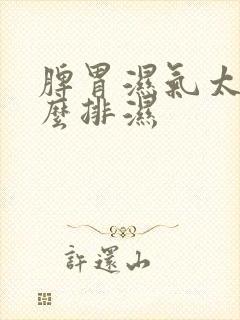 脾胃濕氣太
麼排濕
許還山